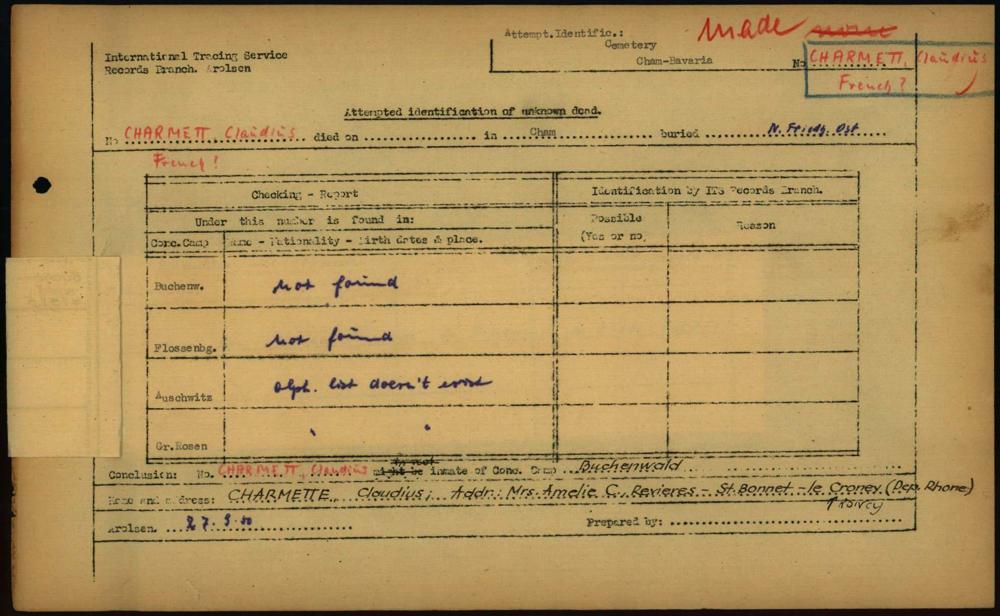 Attempt.Identific.:
Cemetery
Cham-Bavaria
made none
No CHARMETT, Claudius
French?
International Tracing Service
Records Branch. Arolsen
Attempted identification of unknown dead.
No CHARMETT, Claudius died on .................. in ...Cham......... buried .......N. Friedh. Ost....
French?
Checking - Report
Identification by ITS Records Branch.
Under this number is found in:
Possible
(Yes or no)
Reason
Conc.Camp
Name - Nationality - Birth dates & place.
Buchenw. Not found
Flossenbg. Not found
Auschwitz alph. list doesn't exist
Gr.Rosen " "
Conclusion: No. CHARMETT, Claudius might be inmate of Conc. Camp ..Buchenwald
Name and address: CHARMETTE, Claudius; Addr: Mrs. Amelie C., Revieres - St.Bonnet - le Croney (Dep. Rhone)
Arolsen. ...27.9.50..................
Prepared by: ...............................